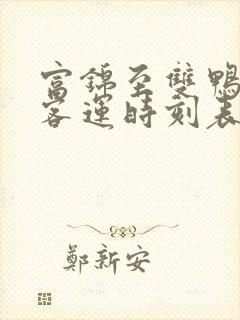 富錦至雙鴨
客運時刻表
鄭新安